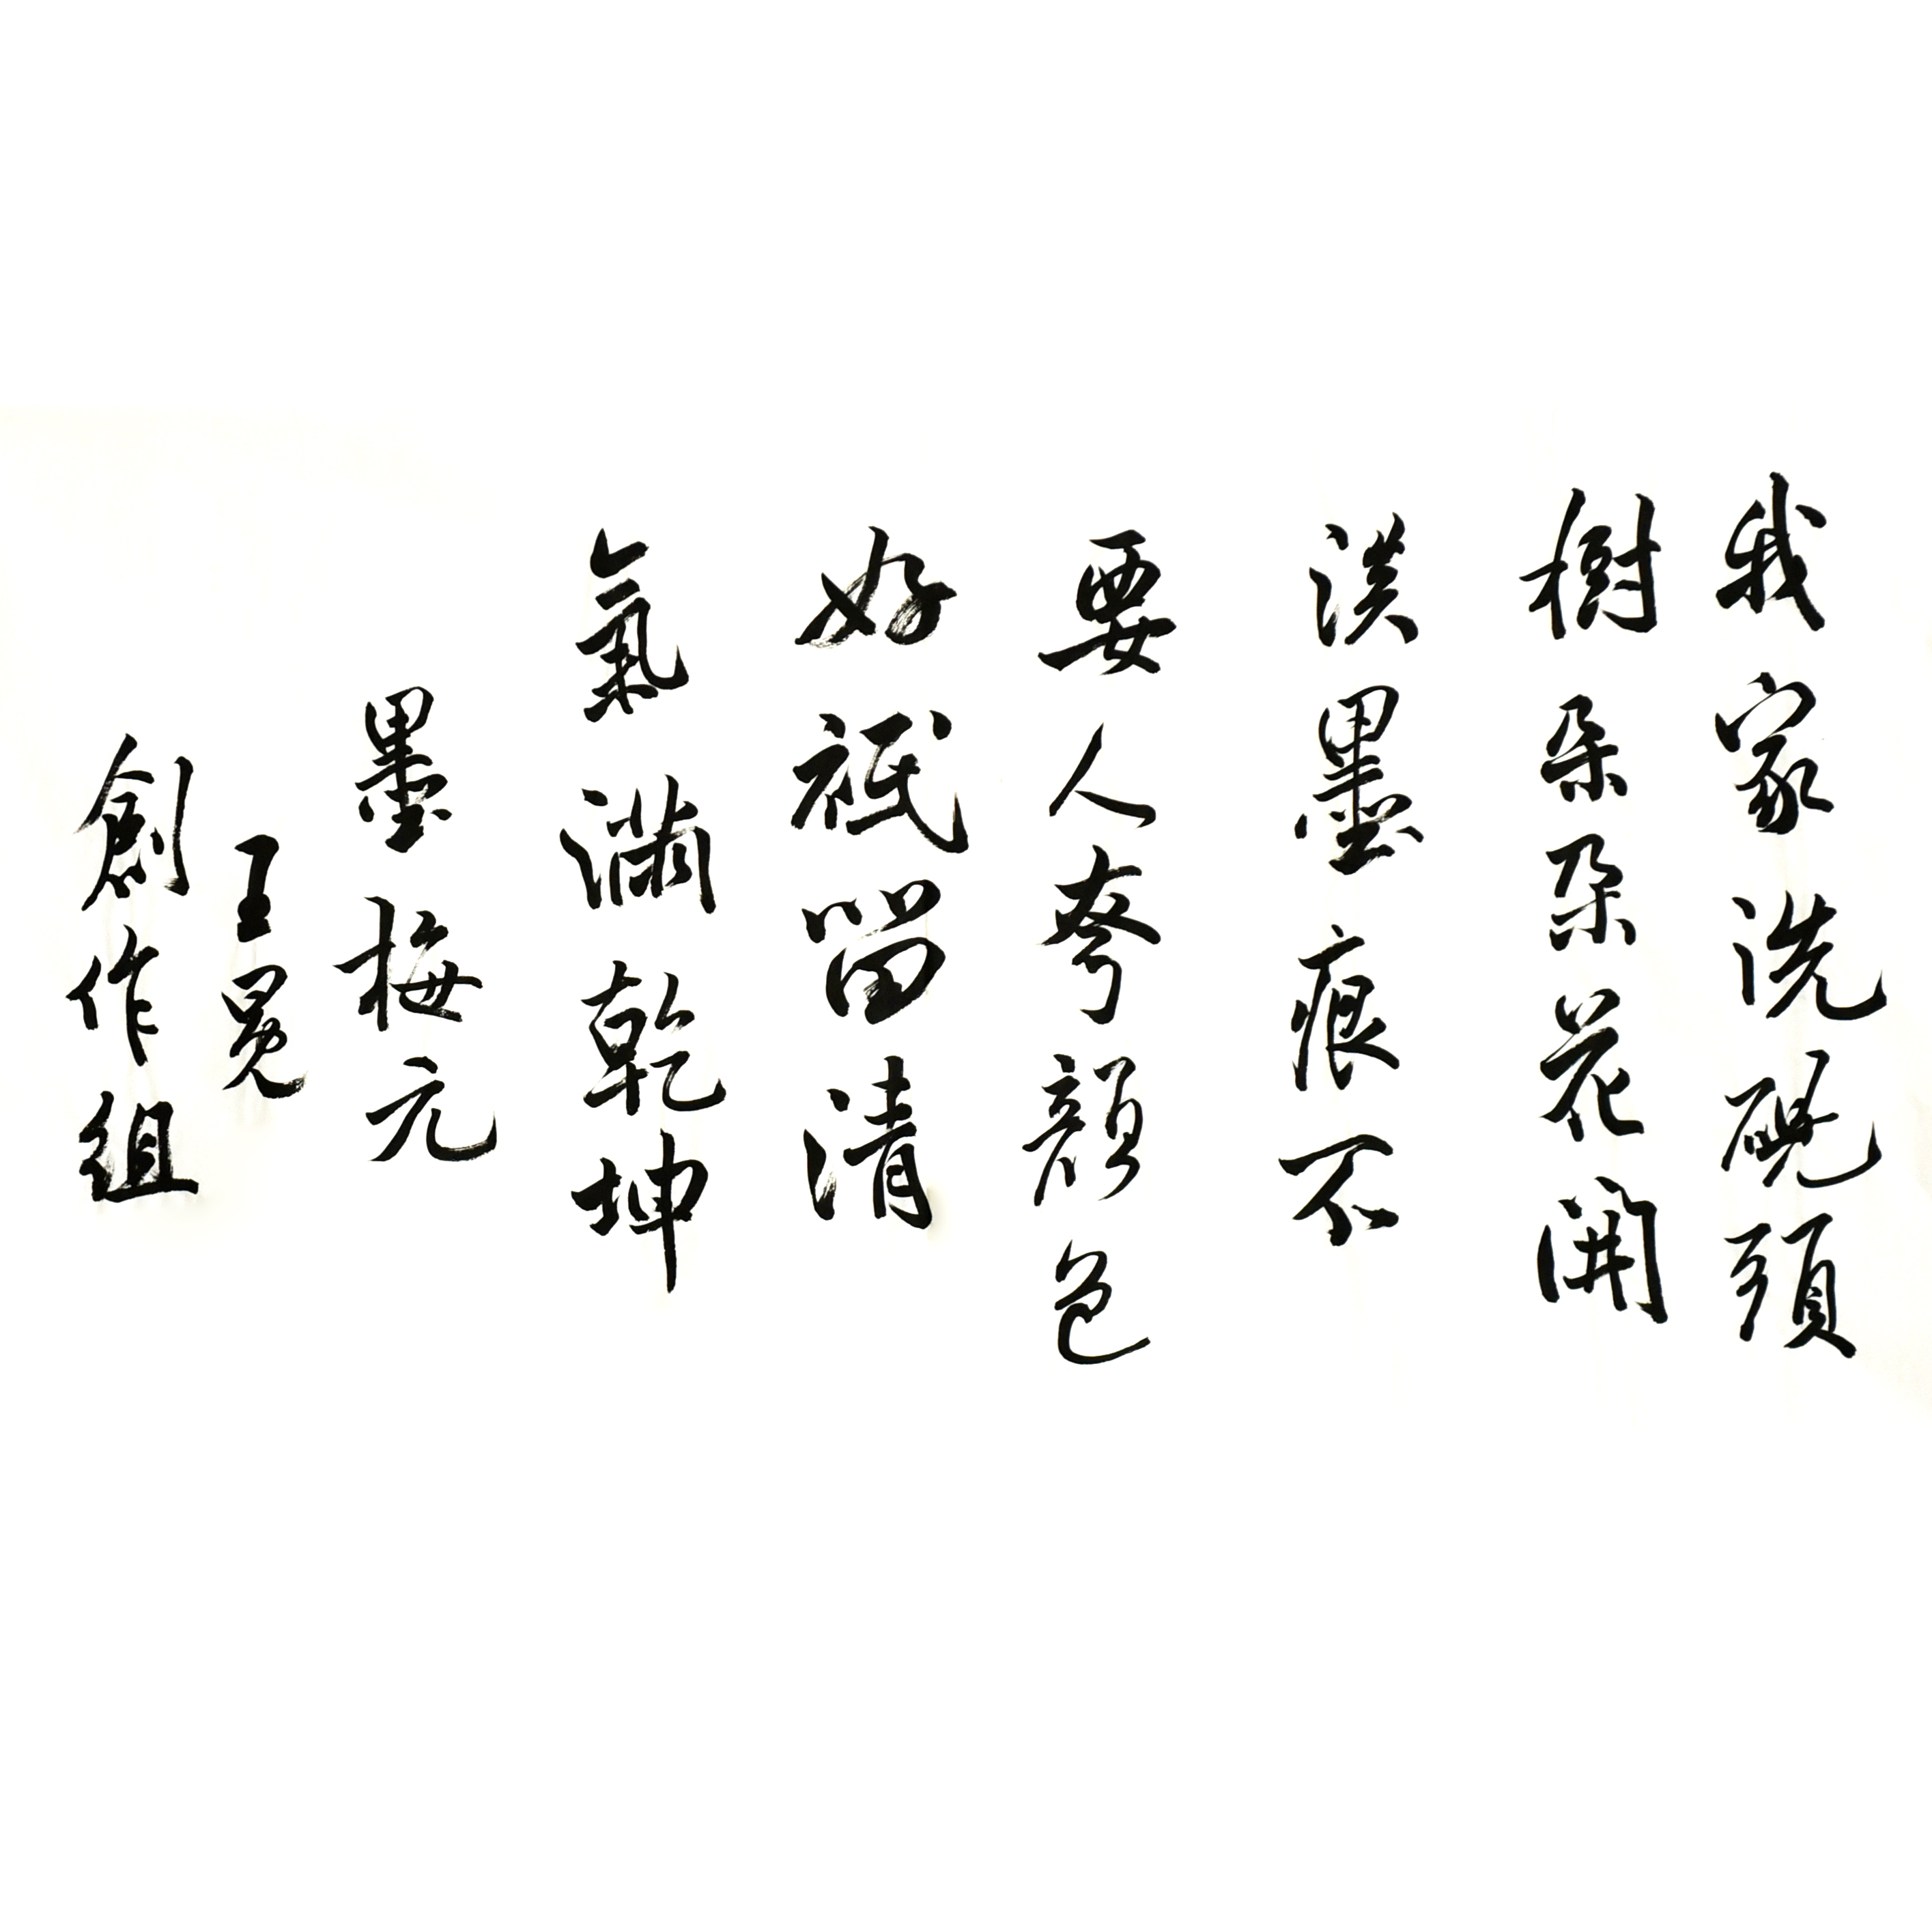 我家洗硯頭
樹朵朵花開
淡墨痕不
要人夸顏色
好祇留清
氣滿乾坤
墨梅元
王冕
創作組